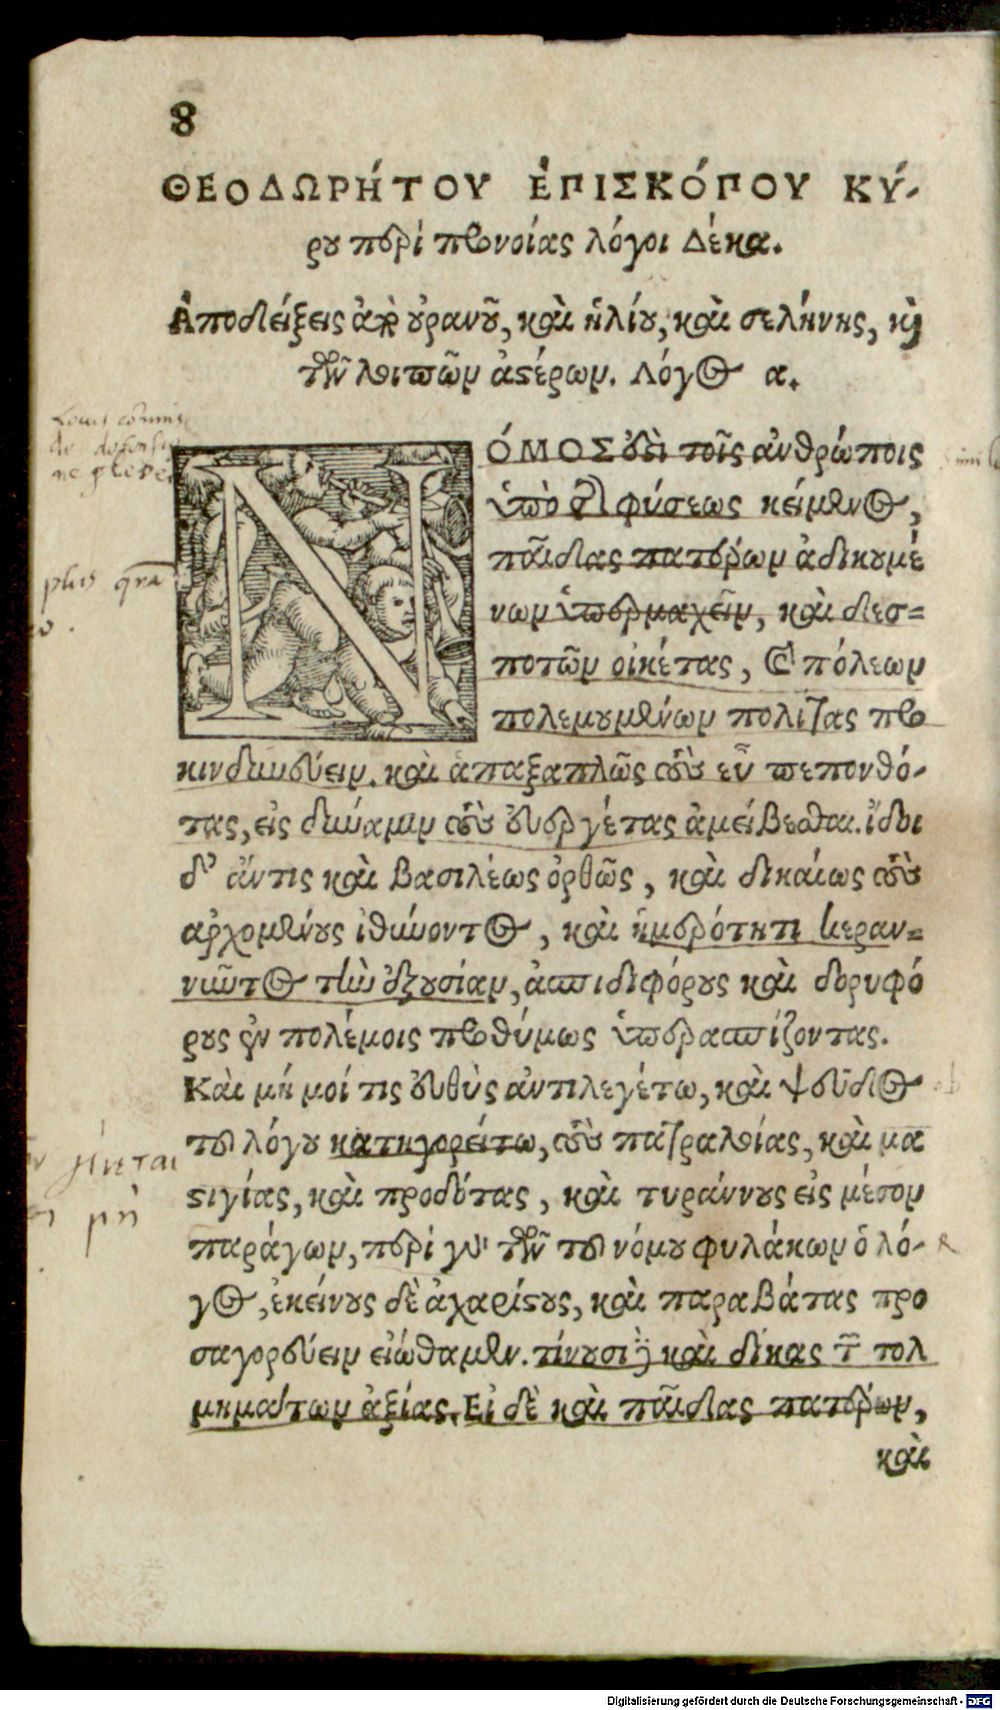 8
ΘΕΟΔΩΡΉΤΟΥ ἘΠΙΣΚΌΠΟΥ ΚΎ-
ρου περὶ προνοίας λόγοι Δέκα.
Ἀποδείξεις ἀπὸ οὐρανοῦ, καὶ ἡλίου, καὶ σελήνης, καὶ
τῶν λοιπῶν ἀστέρων. Λόγος α.
ΝΌΜΟΣ οὗτος τοῖς ἀνθρώποις
ὑπὸ τῆς φύσεως κείμενος,
παῖδας πατέρων ἀδικουμέ
νων ὑπερμαχεῖν, καὶ δεσ=
ποτῶν οἰκέτας, καὶ πόλεων
πολεμουμένων πολίτας προ
κινδυνεύειν. καὶ ἁπαξαπλῶς τοὺς εὖ πεπονθό-
τας, εἰς δύναμιν τοὺς εὐεργέτας ἀμείβεσθαι. ἴδοι
δ' ἄν τις καὶ βασιλέως ὀρθῶς, καὶ δικαίως τοὺς
ἀρχομένους ἰθύνοντος, καὶ ἡμερότητι κεραν=
νῦντος τὴν ἐξουσίαν, ἀσπιδηφόρους καὶ δορυφό
ρους ἐν πολέμοις προθύμως ὑπερασπίζοντας.
Καὶ μή μοί τις εὐθὺς ἀντιλεγέτω, καὶ ψεῦδος
τοῦ λόγου κατηγορείτω, τοὺς πατραλοίας, καὶ μα
στιγίας, καὶ προδότας, καὶ τυράννους εἰς μέσον
παράγων, περὶ γὰρ τῶν τοῦ νόμου φυλάκων ὁ λό-
γος, ἐκείνους δὲ ἀχαρίστους, καὶ παραβάτας προ
σαγορεύειν εἰώθαμεν. τίνουσι γὰρ καὶ δίκας τῶν τολ
μημάτων ἀξίας. Εἰ δὲ καὶ παῖδας πατέρων,
καὶ
plus
μὴ
Digitalisierung gefördert durch die Deutsche Forschungsgemeinschaft - DFG